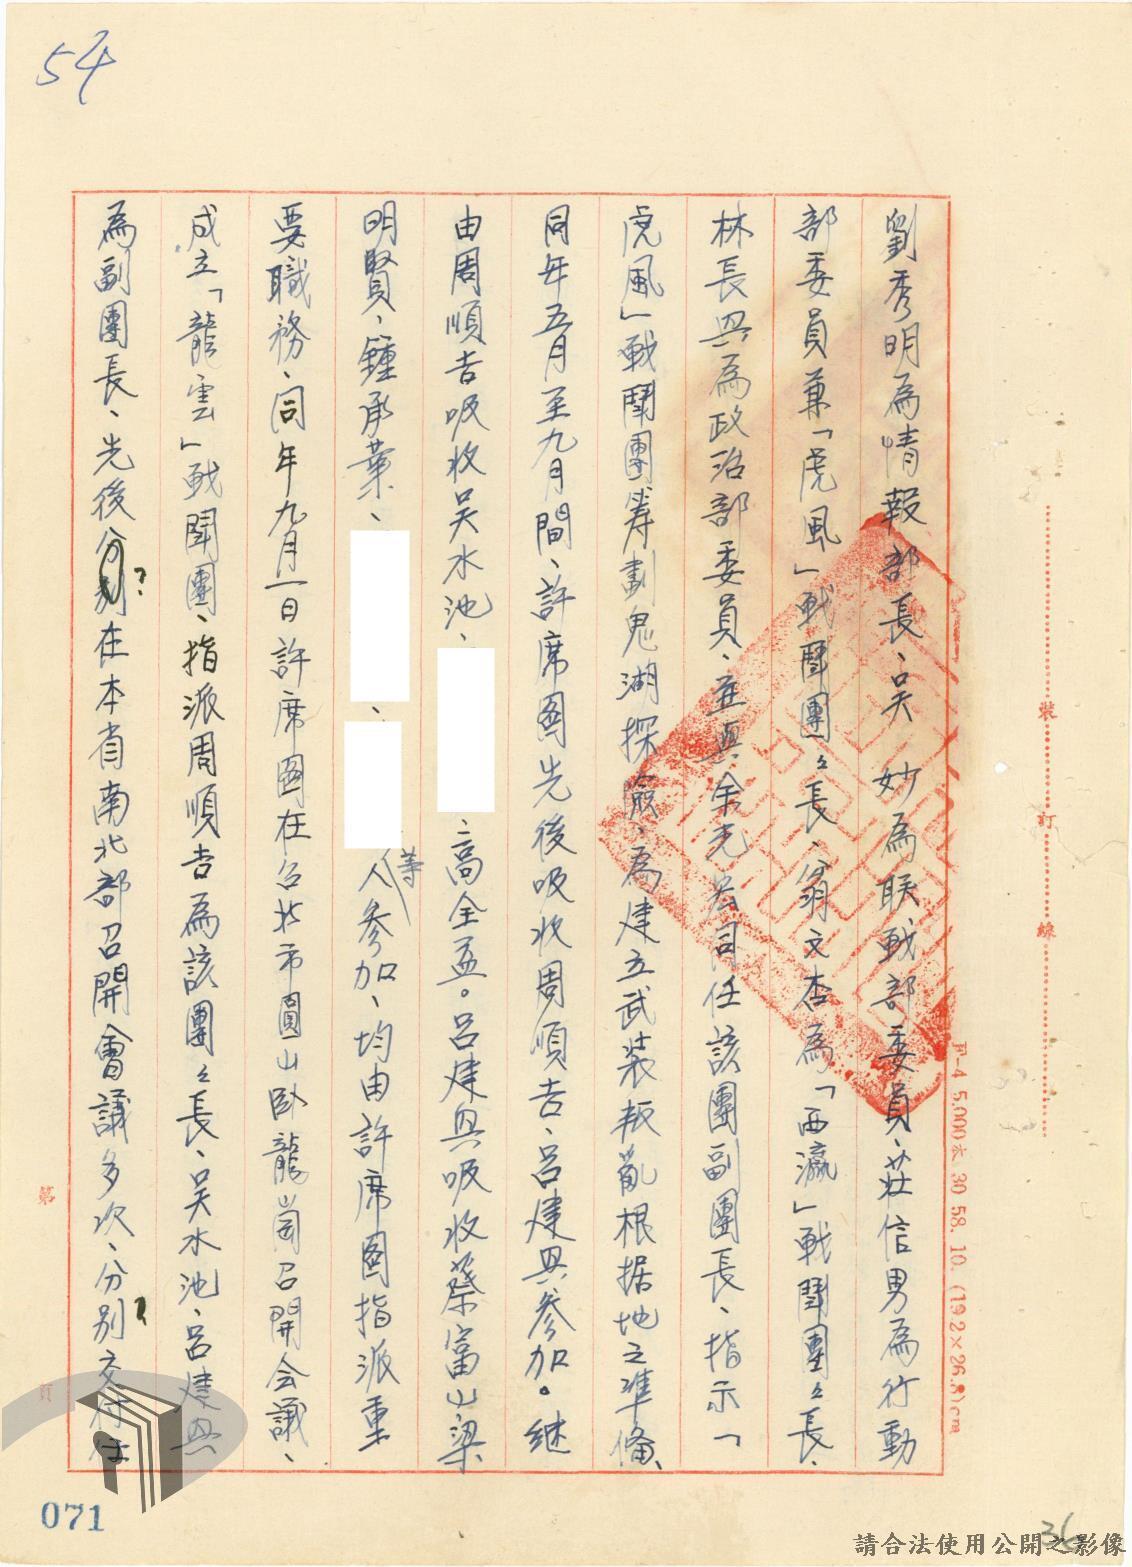 54
劉秀明為情報部長、吳 妙為联战部委員、莊信男為行動
部委員兼「虎風」战鬪團々長、翁文杏為「西瀛」战鬪團々長、
林長興為政治部委員、並與余光 同任該團副團長、指示「
虎風」战鬪團筹劃鬼湖探險、為建立武装叛亂根据地之準備、
同年五月至九月間、許席圖先後吸收周順吉、呂建興參加。継
由周順吉吸收吴水池、
、高全 。呂建興吸收蔡富山梁
明賢、鍾承業、
、
等
人參加、均由許席圖指派重
要職務、同年九月一日許席圖在台北市圓山臥龍崗召開会議、
成立「龍雲」战鬪團、指派周順吉為該團々長、吴水池、呂建興
為副團長、先後分別在本省南北部召開會議多次、分別交付任
?
?
裝
訂
線
F-4 5,000本 30 58. 10. (19.2×26.8)cm
第
頁
071
36
請合法使用公開之影像